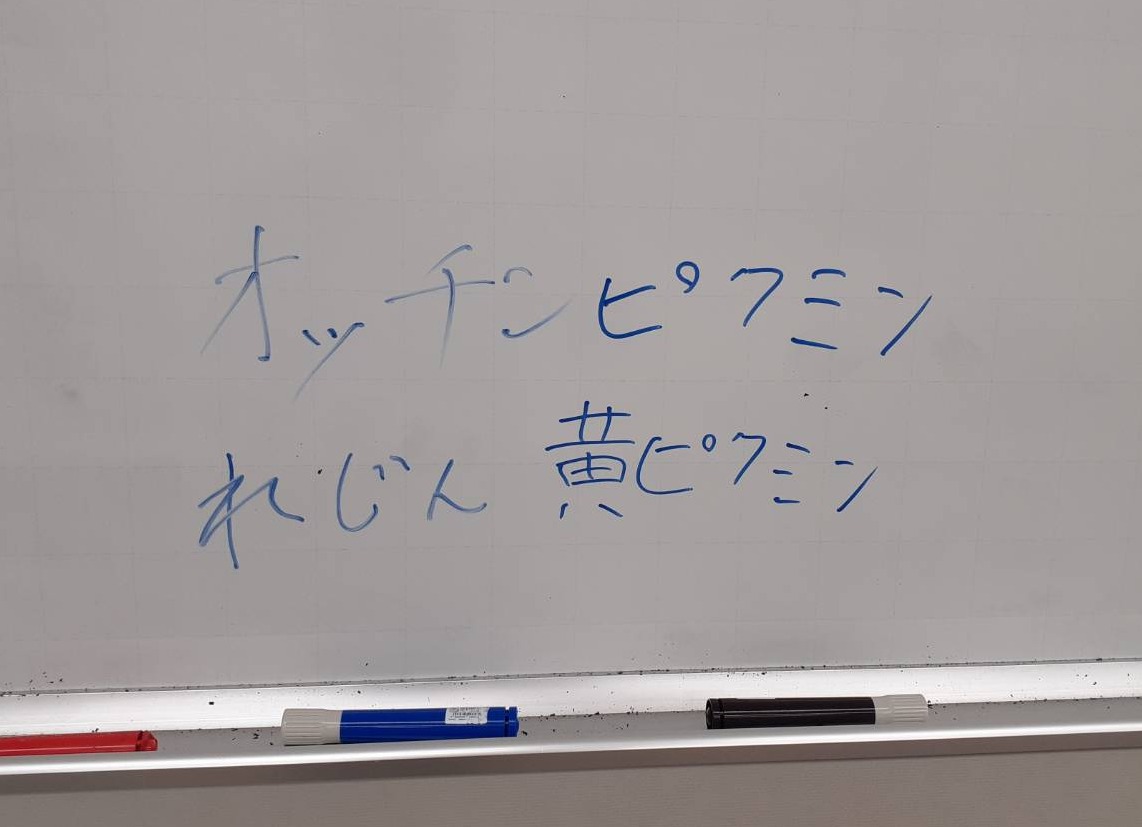 オッチンピクミン
れじん 黄ピクミン